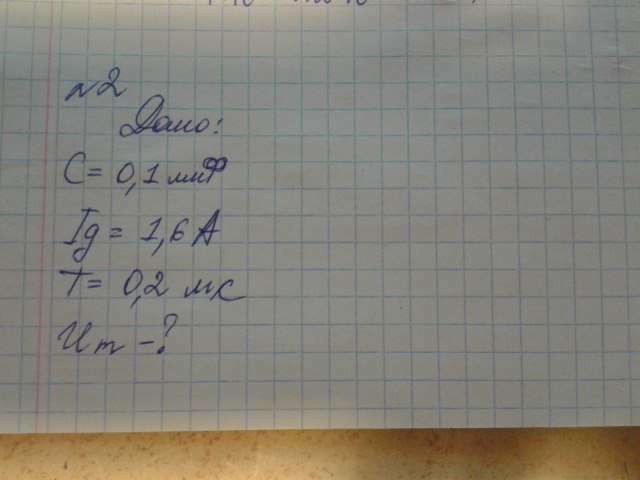 №2
Дано:
C = 0,1 мкФ
Iд = 1,6 А
T = 0,2 мс
Um - ?